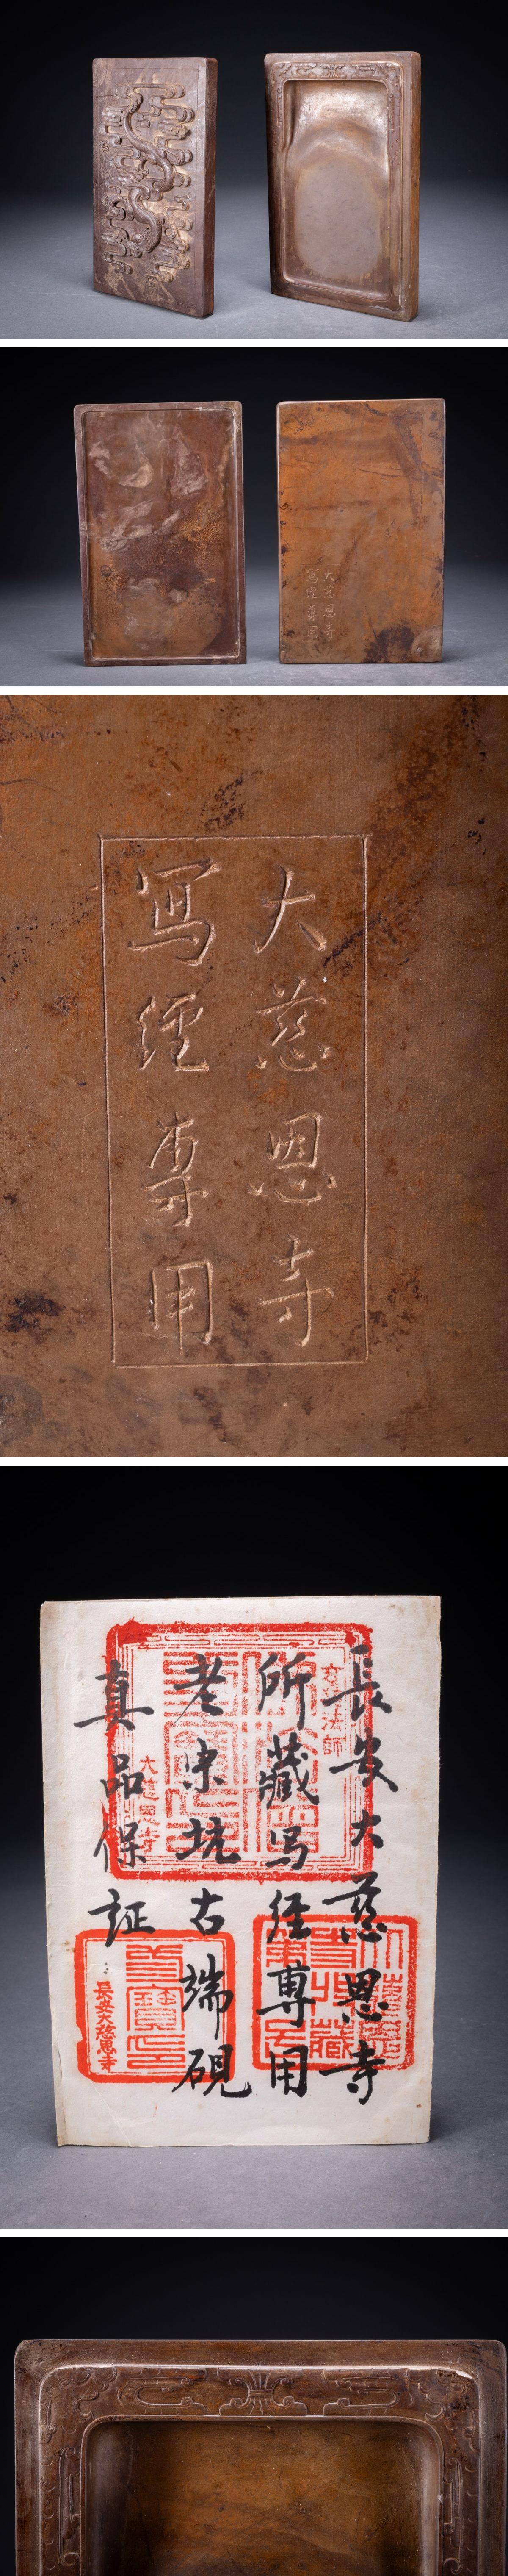 大慈恩寺
寫經專用
大慈恩寺
寫經專用
長安大慈恩寺
所藏写經專用
老宋坑古端硯
真品保証
玄奘法師
大慈恩寺
長安大慈恩寺